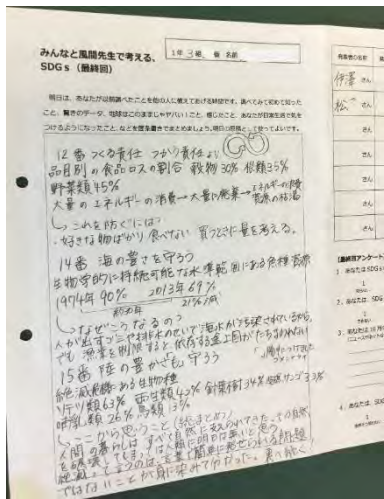 みんなと風間先生で考える、
SDGs（最終回）
1年3組 番 名前
明日は、あなたが以前調べたことを他の人に教えてあげる時間です。調べてみて初めて知った
こと、驚きのデータ、地球はこのままじゃヤバい！こと、感じたこと、あなたが日常生活で気を
つけるようになったこと、などを箇条書きでまとめましょう。明日の原稿として使ってよいです。
12番 つくる責任 つかう責任より
品目別の食品ロスの割合 穀物30% 根類35%
野菜類45%
大量のエネルギーの消費→大量に廃棄→エネルギーの消費
資源の枯渇
これを防ぐには
・好きな物ばかり食べない 買うときに量を考える。
14番 海の豊さを守ろう
生物学的に持続可能な水準範囲にある魚種資源
1974年 90% 2013年 69%
約40年 21%減
なぜこうなるの？
人が出すゴミや排水のせいで海水が汚染されているから。
でも漁業を制限すると依存する途上国がたちまわれない
15番 陸の豊かさも守ろう
絶滅危機にある生物種
ソテツ類63% 両生類42% 針葉樹34% 造礁サンゴ33%
哺乳類26% 鳥類13%
ここから思うこと（まとめ）
人間の暮らしは、すべて自然に支えられてきた。その自然
を破壊してしまっては人間に明日は無いと思う
ではないことが身に染みて分かった。
有権者の名前
伊澤 さん
松 さん
さん
さん
さん
さん
【最終回アンケート】
1 あなたはSDGs
2. あなたは、SDG
3. あなたは10月
4. あなたは、SDG